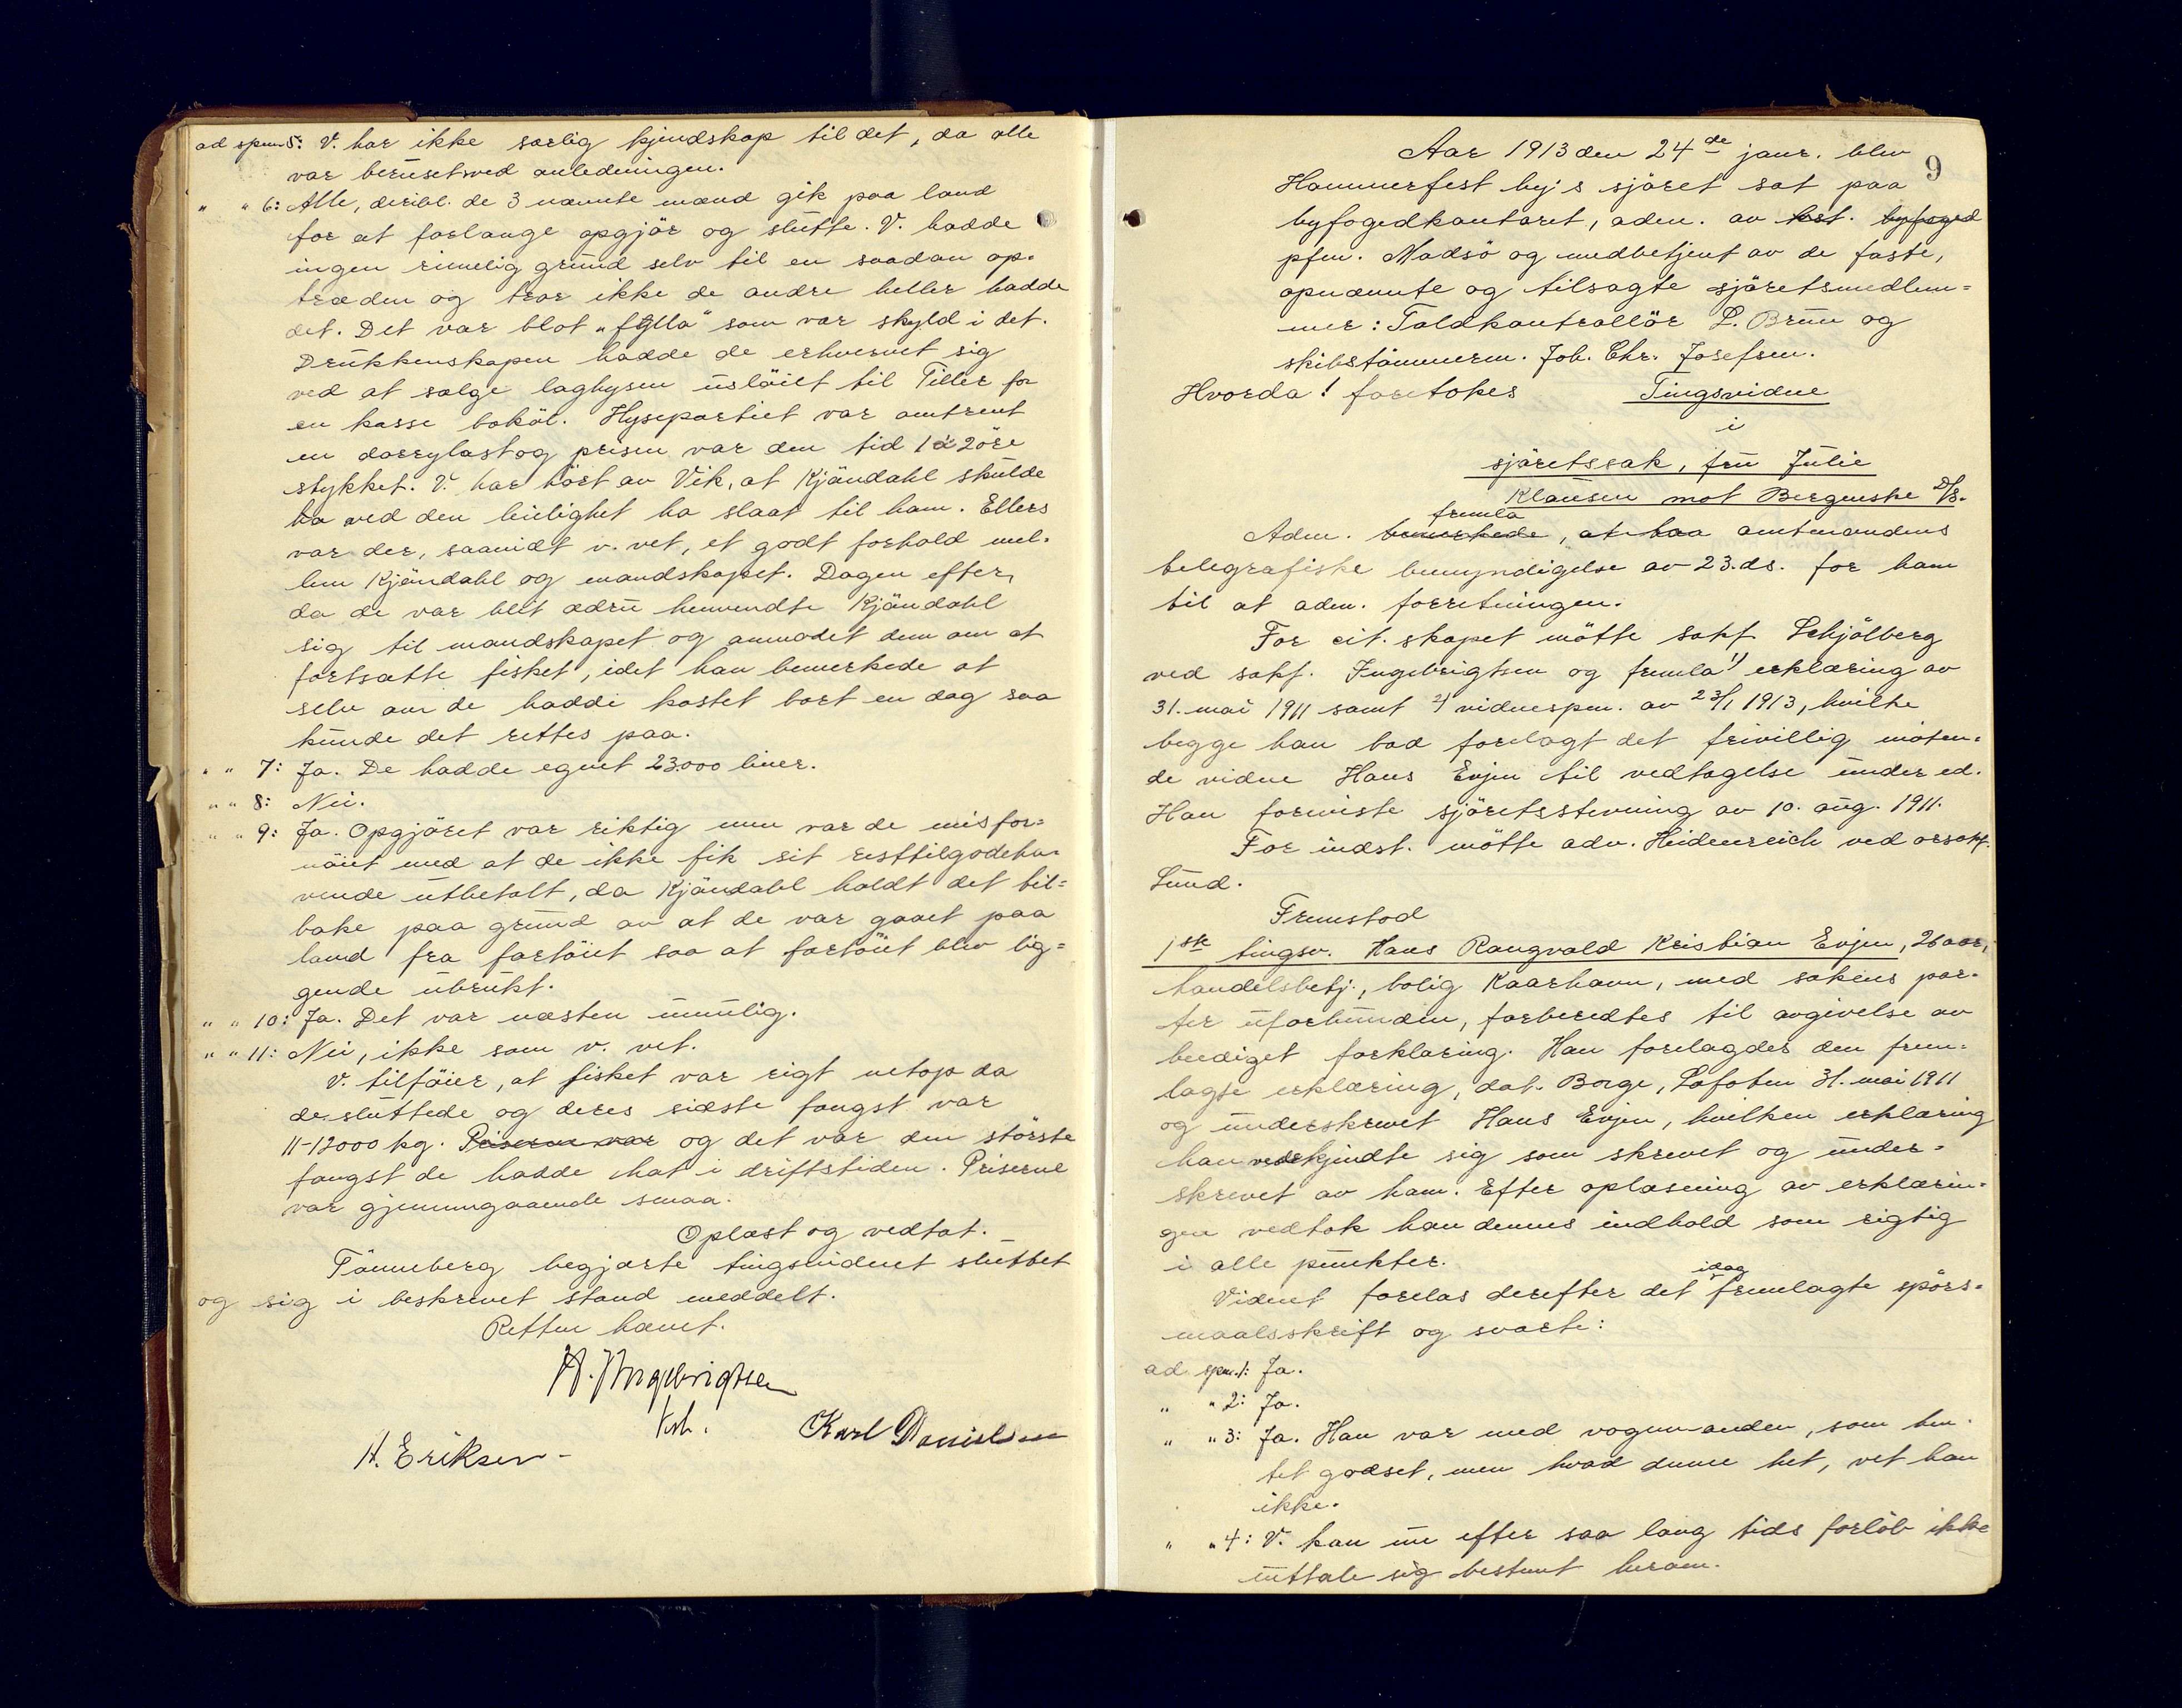 ad spm 5: V. har ikke særlig kjendskap til det, da alle
var beruset ved anledningen.
" " 6: Alle, deribl. de 3 nævnte mænd gik paa land
for at forlange opgjör og slutte. V. hadde
ingen rimelig grund selv til en saadan op-
træden og tror ikke de andre heller hadde
det. Det var blot "fylla" som var skyld i det.
Drukkenskapen hadde de erhvervet sig
ved at sælge laghysen uslöiet til Tiller for
en kasse boköl. Hysepartiet var omtrent
en dorrylast og prisen var den tid 1 à 2 öre
stykket. V. har hört av Vik, at Kjöndahl skulde
ha ved den leilighet ha slaat til ham. Ellers
var der, saavidt v. vet, et godt forhold mel-
lem Kjöndahl og mandskapet. Dagen efter,
da de var blit ædru henvendte Kjöndahl
sig til mandskapet og anmodet dem om at
fortsætte fisket, idet han bemerkede at
selv om de hadde kastet bort en dag saa
kunde det rettes paa.
" " 7: Ja. De hadde egnet 23000 liner.
" " 8: Nei.
" " 9: Ja. Opgjöret var riktig men var de misfor-
nöiet med at de ikke fik sit resttilgodeha-
vende utbetalt, da Kjöndahl holdt det til-
bake paa grund av at de var gaaet paa
land fra fartöiet saa at fartöiet blev lig-
gende ubrukt.
" " 10: Ja. Det var næsten umulig.
" " 11: Nei, ikke som v. vet.
V. tilföier, at fisket var rigt netop da
de sluttede og deres sidste fangst var
11-12000 kg. Priserne var og det var den störste
fangst de hadde hat i driftstiden. Priserne
var gjennemgaaende smaa.
Oplæst og vedtat.
Tönneberg begjærte tingsvidnet sluttet
og sig i beskrevet stand meddelt.
Retten hævet.
H. Ingebrigtsen
kst.
Karl Danielsen
H. Eriksen
9
Aar 1913 den 24de janr. blev
Hammerfest by's sjöret sat paa
byfogedkontoret, adm. av kst. byfoged
pfm. Madsö og medbetjent av de faste,
opnævnte og tilsagte sjöretsmedlem-
mer: Toldkontrollör L. Brun og
skibstömmerm. Joh. Chr. Josefsen.
Hvorda! foretokes Tingsvidne
i
sjöretssak, fru Julie
Klausen mot Bergenske D/S.
fremla
Adm. bemerkede, at haa amtmandens
telegrafiske bemyndigelse av 23. ds. for ham
til at adm. forretningen.
For cit. skapet mötte sakf. Schjölberg
ved sakf. Ingebrigtsen og fremla 1) erklæring av
31. mai 1911 samt 2) vidnespm. av 23/1 1913, hvilke
begge han bad forelagt det frivillig möten-
de vidne Hans Evjen til vedtagelse under ed.
Han foreviste sjöretsstevning av 10. aug. 1911.
For indst. mötte adv. Heidenreich ved orsakf.
Lund.
Fremstod
1ste tingsv. Hans Rangvald Kristian Evjen, 26 aar,
handelsbetj., bolig Kaarhavn, med sakens par-
ter uforbunden, forberedtes til avgivelse av
beediget forklaring. Han forelagdes den frem-
lagte erklæring, dat. Borge, Lofoten 31. mai 1911
og underskrevet Hans Evjen, hvilken erklæring
han vedkjendte sig som skrevet og under-
skrevet av ham. Efter oplæsning av erklærin-
gen vedtok han dennes indhold som rigtig
i alle punkter.
idag
Vidnet forelæs derefter det fremlagte spörs-
maalsskrift og svarte:
ad spm. 1: Ja.
" " 2: Ja.
" " 3: Ja. Han var med vognmanden, som hen-
tet godset, men hvad denne het, vet han
ikke.
" " 4: V. kan nu efter saa lang tids forlöb ikke
uttale sig bestemt herom.